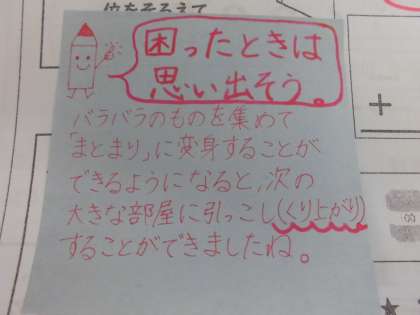 位をそろえて
困ったときは
思い出そう。
バラバラのものを集めて
「まとまり」に変身することが
できるようになると、次の
大きな部屋に引っこし(くり上がり)
することができましたね。
+